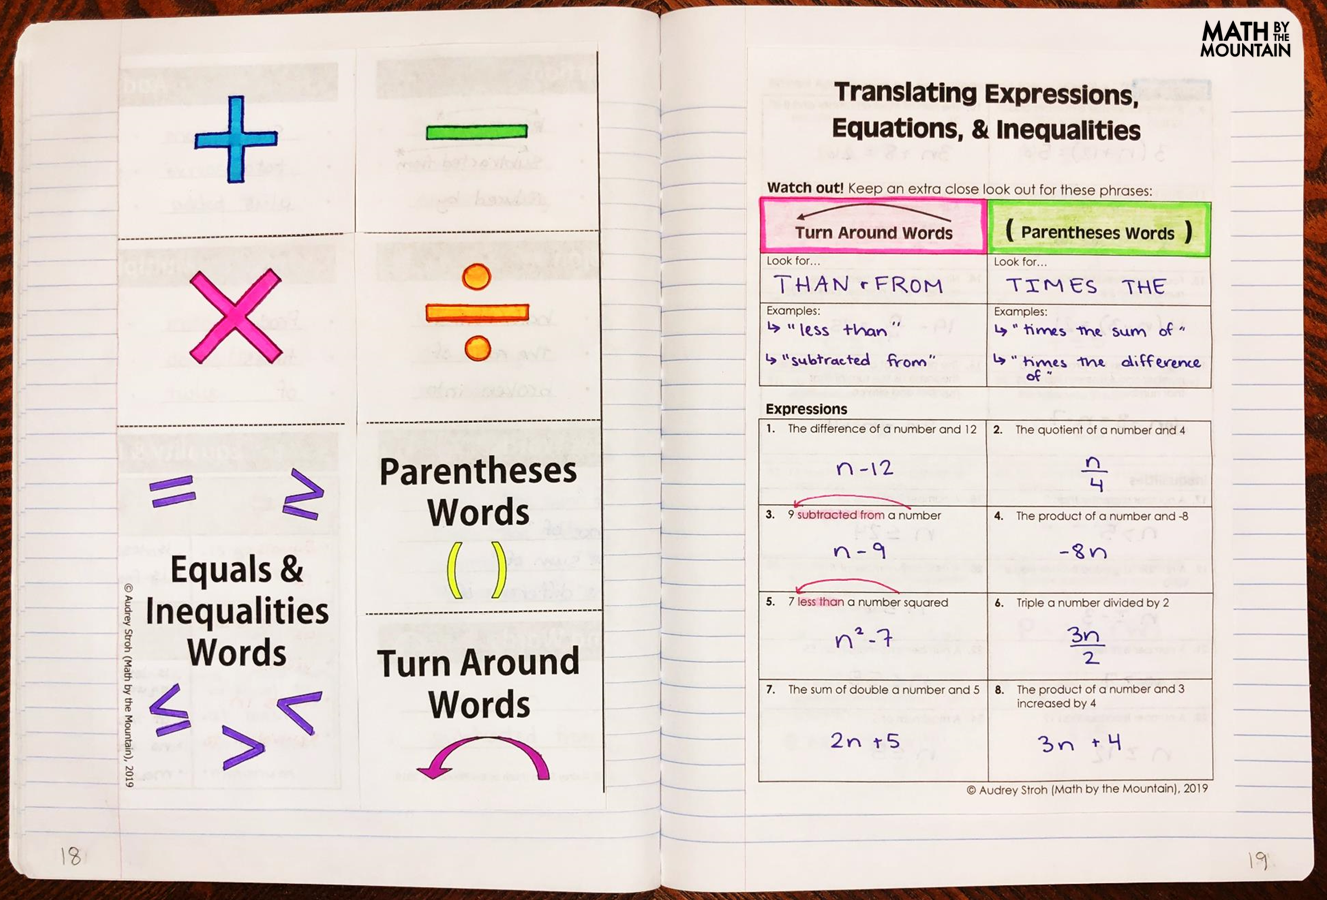 MATH BY THE MOUNTAIN
+
−
×
÷
= ≥
Equals &
Inequalities
Words
≤ > <
Parentheses
Words
( )
Turn Around
Words
© Audrey Stroh (Math by the Mountain), 2019
18
Translating Expressions,
Equations, & Inequalities
Watch out! Keep an extra close look out for these phrases:
Turn Around Words
( Parentheses Words )
Look for...
THAN & FROM
Look for...
TIMES THE
Examples:
↳ "less than"
↳ "subtracted from"
Examples:
↳ "times the sum of"
↳ "times the difference
of"
Expressions
1. The difference of a number and 12
n - 12
2. The quotient of a number and 4
n/4
3. 9 subtracted from a number
n - 9
4. The product of a number and -8
-8n
5. 7 less than a number squared
n² - 7
6. Triple a number divided by 2
3n/2
7. The sum of double a number and 5
2n + 5
8. The product of a number and 3
increased by 4
3n + 4
© Audrey Stroh (Math by the Mountain), 2019
19